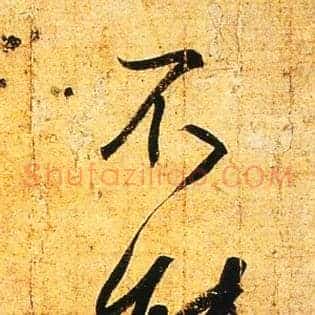 不
Shufaziliao.COM